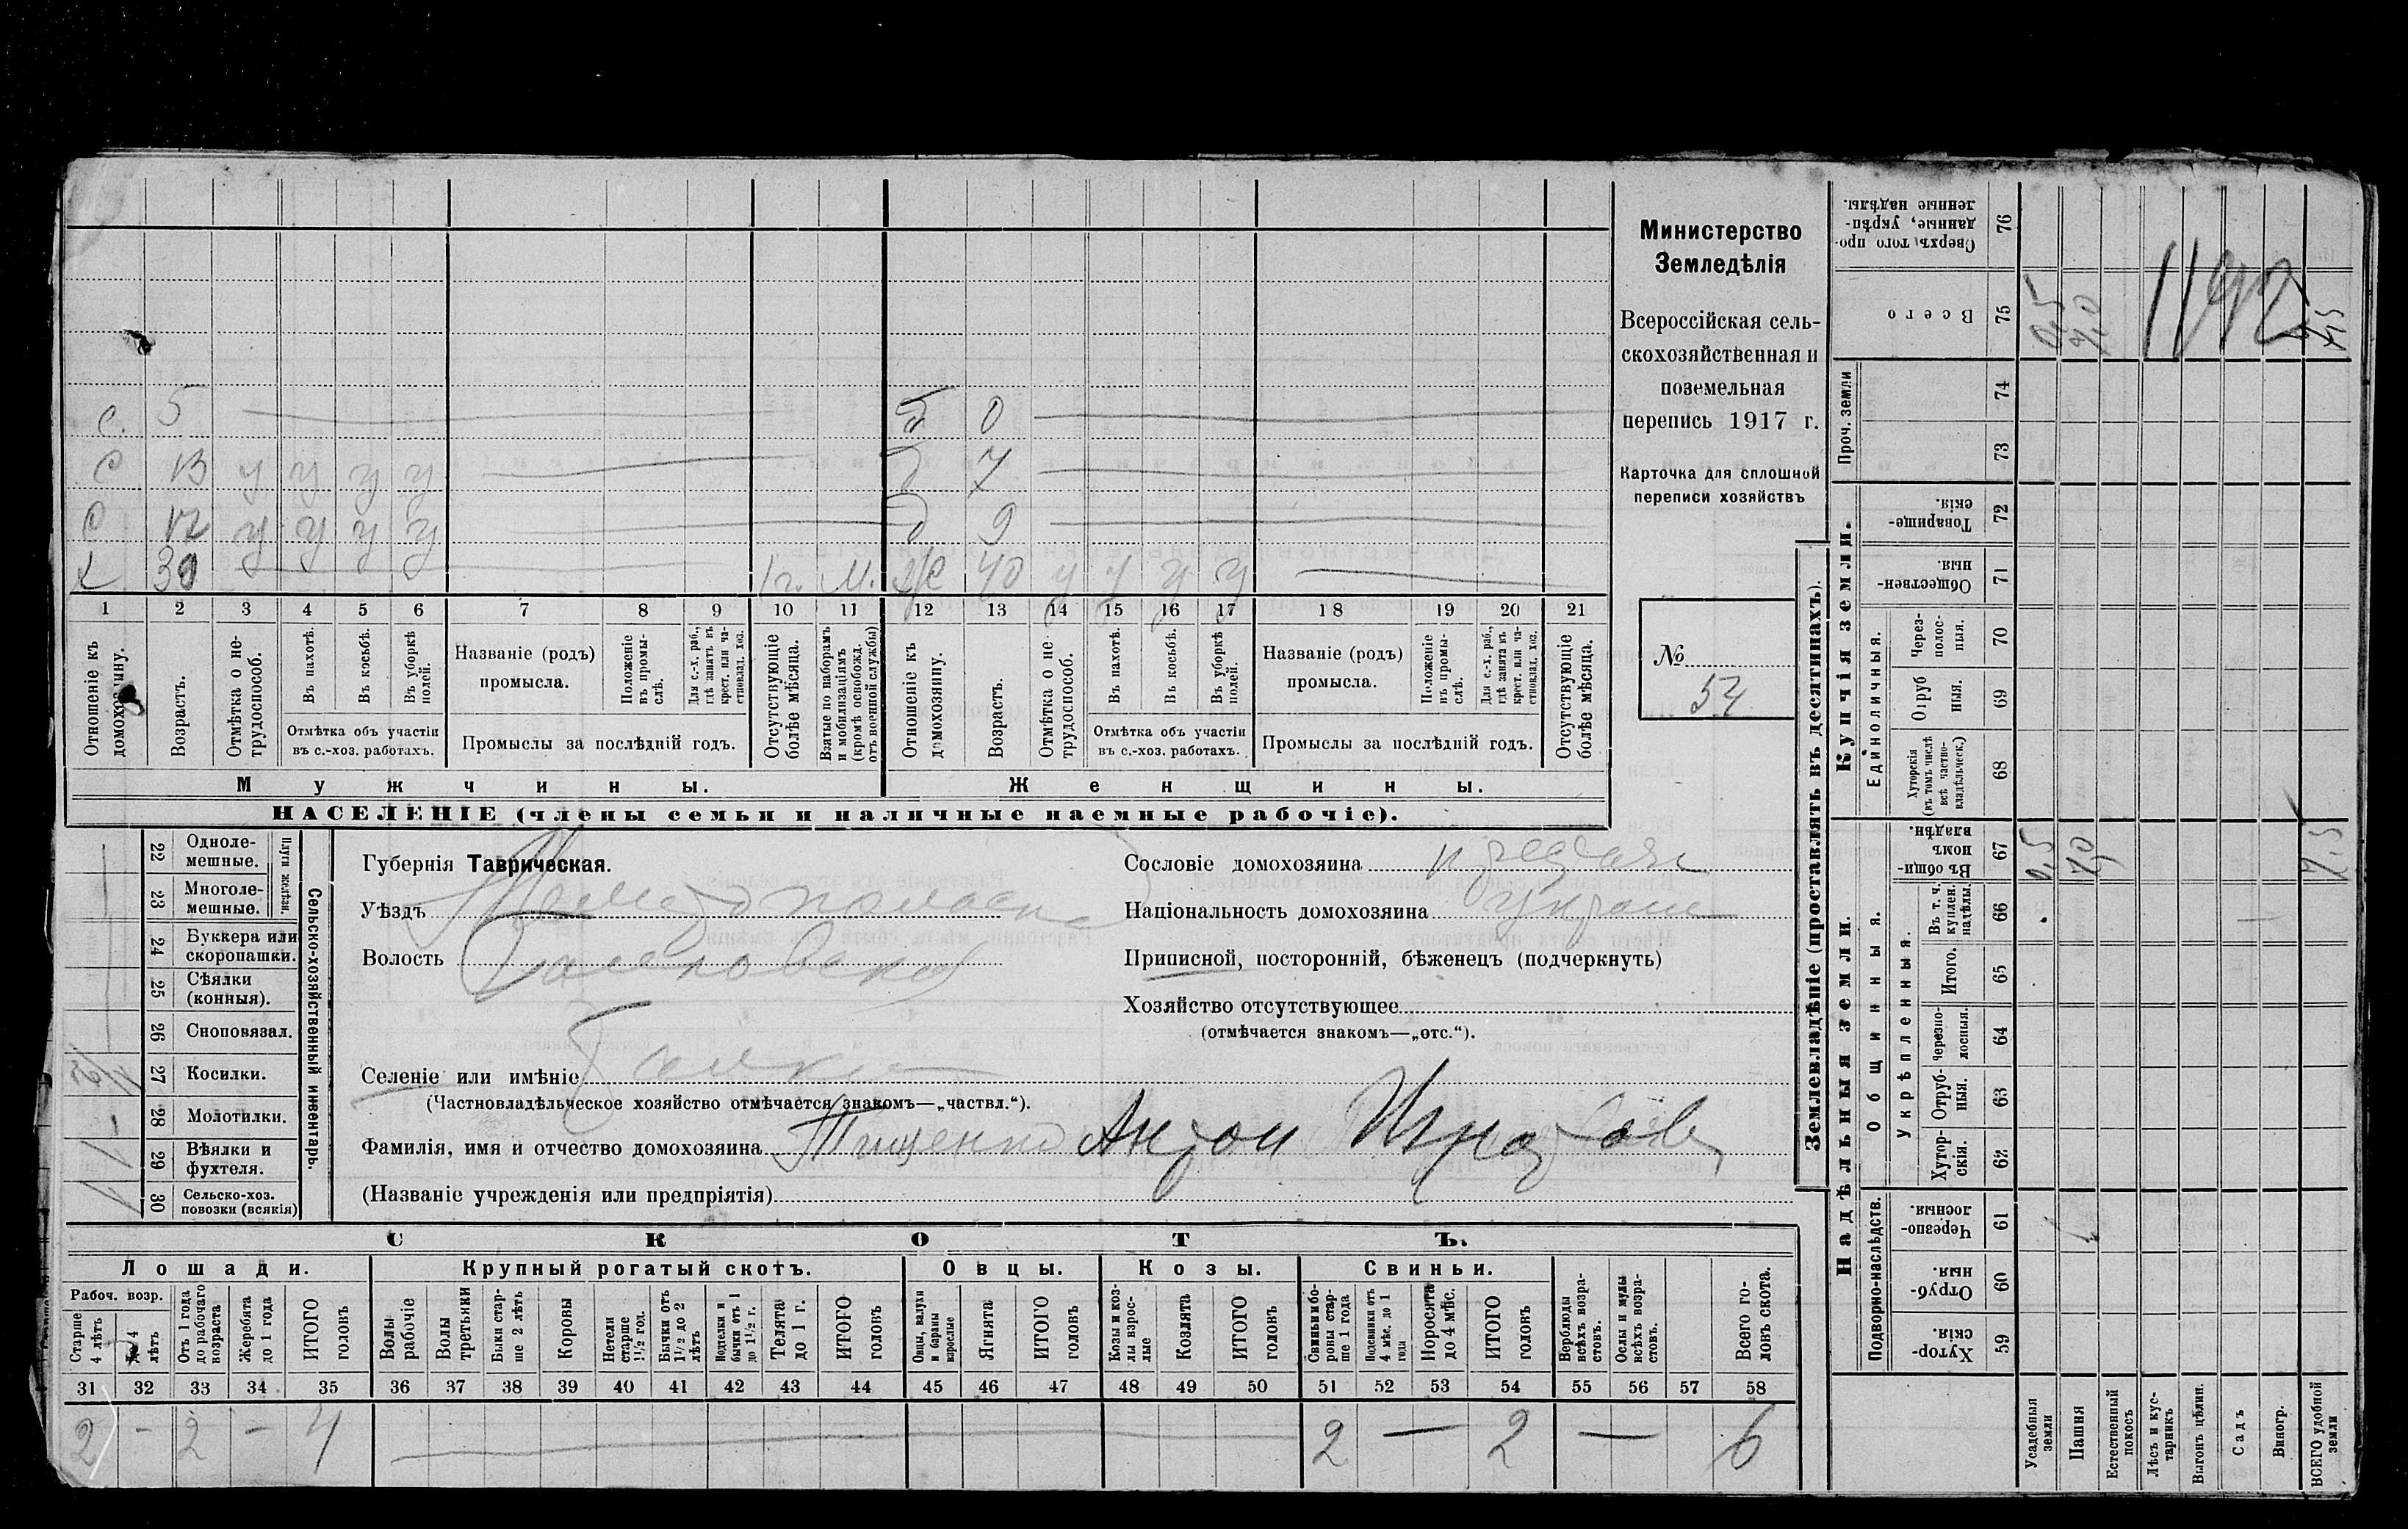 Министерство
Земледѣлія
Всероссійская сель-
скохозяйственная и
поземельная
перепись 1917 г.
Карточка для сплошной
переписи хозяйствъ
№
54
с. 5
5 0
с 13 у у у у
д 7
с 12 у у у у
д 9
х 39 1 г. м. ж 40 у у у у
1 2 3 4 5 6 7 8 9 10 11 12 13 14 15 16 17 18 19 20 21
Отношеніе къ домохозяину.
Возрастъ.
Отмѣтка о не-трудоспособ.
Въ пахотѣ.
Въ косьбѣ.
Въ уборкѣ полей.
Отмѣтка объ участіи
въ с.-хоз. работахъ.
Названіе (родъ)
промысла.
Положеніе въ промы-слѣ.
Для с.-х. раб., гдѣ занятъ въ крест. или ча-стновлад. хоз.
Промыслы за послѣдній годъ.
Отсутствующіе болѣе мѣсяца.
Взятые по наборамъ и мобилизаціямъ (кромѣ освобожд. отъ военной службы)
Отношеніе къ домохозяину.
Возрастъ.
Отмѣтка о не-трудоспособ.
Въ пахотѣ.
Въ косьбѣ.
Въ уборкѣ полей.
Отмѣтка объ участіи
въ с.-хоз. работахъ.
Названіе (родъ)
промысла.
Положеніе въ промы-слѣ.
Для с.-х. раб., гдѣ занята въ крест. или ча-стновлад. хоз.
Промыслы за послѣдній годъ.
Отсутствующіе болѣе мѣсяца.
Мужчины.
Женщины.
НАСЕЛЕНІЕ (члены семьи и наличные наемные рабочіе).
22 Одноле-мешные.
23 Многоле-мешные.
Плуги желѣзн.
24 Буккера или скоропашки.
25 Сѣялки (конныя).
26 Сноповязал.
27 Косилки.
28 Молотилки.
29 Вѣялки и фухтеля.
30 Сельско-хоз. повозки (всякія)
Сельско-хозяйственный инвентарь.
Губернія Таврическая.
Уѣздъ Мелитопольск
Волость
Селеніе или имѣніе
(Частновладѣльческое хозяйство отмѣчается знакомъ—„частвл.“).
Фамилія, имя и отчество домохозяина Тищенко Антон Игнатов
(Названіе учрежденія или предпріятія)
Сословіе домохозяина
Національность домохозяина
Приписной, посторонній, бѣженецъ (подчеркнуть)
Хозяйство отсутствующее
(отмѣчается знакомъ—„отс.“).
СКОТЪ.
Лошади.
Крупный рогатый скотъ.
Овцы.
Козы.
Свиньи.
Рабоч. возр.
Старше 4 лѣтъ
До 4 лѣтъ
Отъ 1 года до рабочаго возраста
Жеребята до 1 года
ИТОГО головъ
Волы рабочіе
Волы третьяки
Быки стар-ше 2 лѣтъ
Коровы
Нетели старше 1½ год.
Бычки отъ 1½ до 2 лѣтъ
Подтелки и бычки отъ 1 до 1½ г.
Телята до 1 г.
ИТОГО головъ
Овцы, валухи и бараны взрослые
Ягнята
ИТОГО головъ
Козы и коз-лы взрос-лые
Козлята
ИТОГО головъ
Свиньи и бо-ровы стар-ше 1 года
Подсвинки отъ 4 мѣс. до 1 года
Поросята до 4 мѣс.
ИТОГО головъ
Верблюды всѣхъ возра-стовъ.
Ослы и мулы всѣхъ возра-стовъ.
Всего го-ловъ скота.
31 32 33 34 35 36 37 38 39 40 41 42 43 44 45 46 47 48 49 50 51 52 53 54 55 56 57 58
2 — 2 — 4
2 — 2 — 6
Землевладѣніе (проставлять въ десятинахъ).
Купчія земли.
Надѣльныя земли.
Сверхъ того про-данные, укрѣп-ленные надѣлы. 76
Всего 75
Проч. земли
74
73
Товарище-скія 72
Обществен-ныя. 71
Единоличныя.
Через-полос-ныя. 70
Отруб ныя. 69
Хуторскія (въ томъ числѣ всѣ частно-владѣльческ.) 68
Въ общи-номъ владѣн. 67
Общинныя.
Укрѣпленныя.
Въ т. ч. куплен. надѣлы. 66
Итого. 65
Черезпо-лосныя. 64
Отруб-ныя. 63
Хутор-скія. 62
Подворно-наслѣдств.
Черезпо-лосныя. 61
Отруб-ныя. 60
Хутор-скія. 59
Усадебныя земли
Пашня
Естественный покосъ
Лѣсъ и кус-тарникъ
Выгонъ цѣлин.
Садъ
Виногр.
ВСЕГО удобной земли
0,5
7,0
7,5
0,5
7,0
7,5
1192